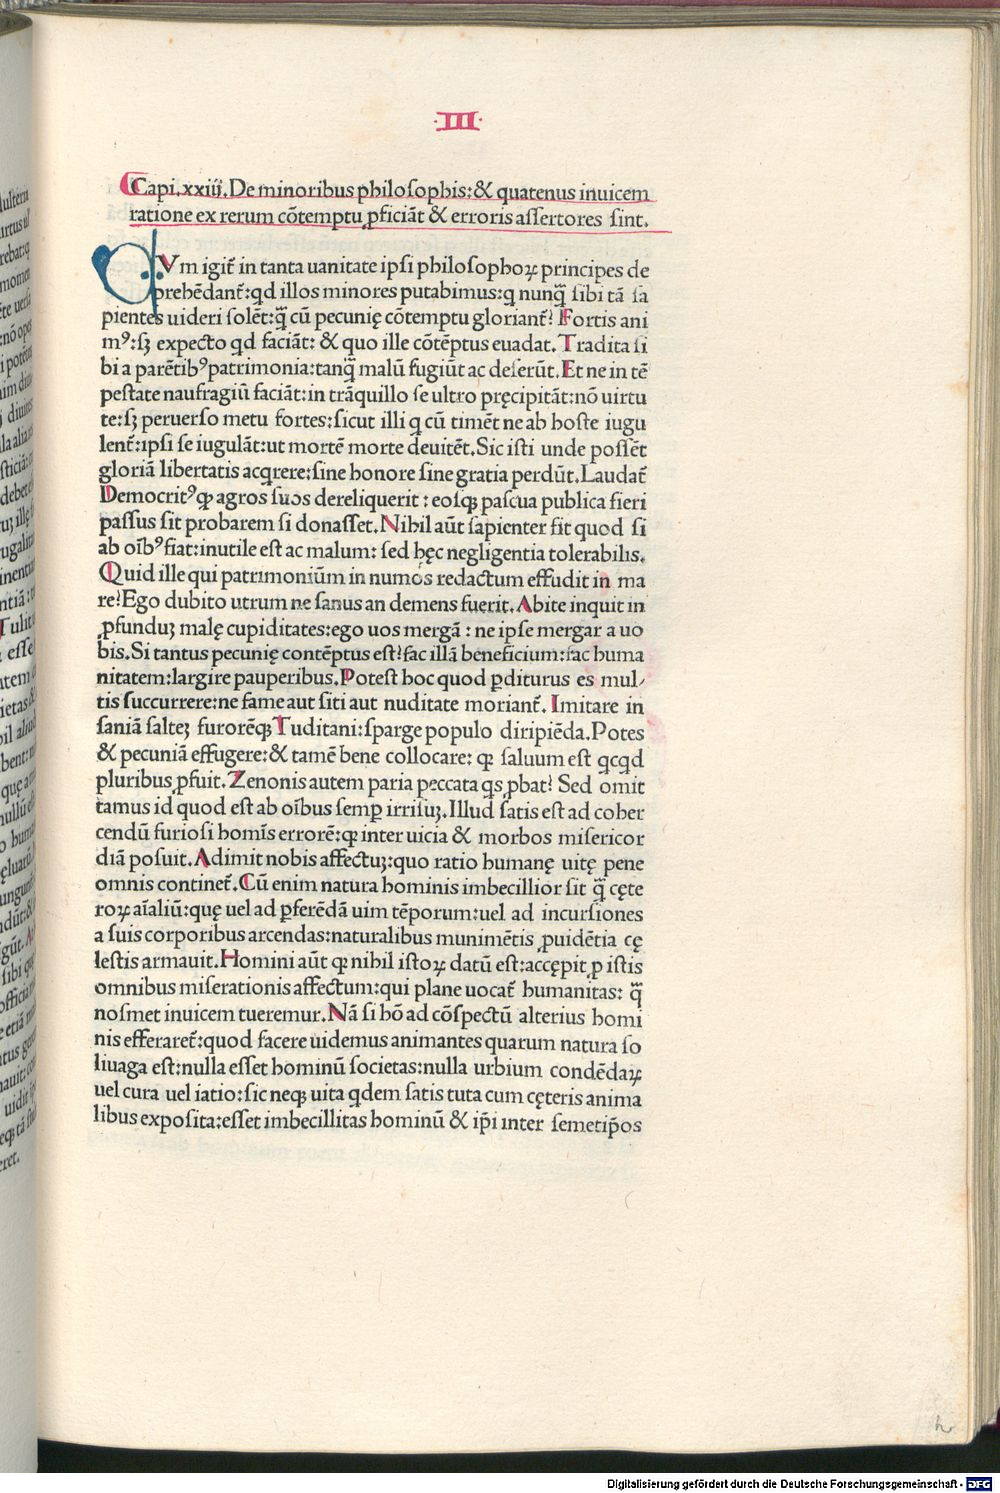 ·III·
Capi.xxiij.De minoribus philosophis:& quatenus inuicem
ratione ex rerum cōtemptu ꝓficiāt & erroris assertores sint.
QVm igit̄ in tanta uanitate ipsi philosophoꝝ principes de
prehēdant̄:qd illos minores putabimus:q nunq̄ sibi tā sa
pientes uideri solēt:q̄ cū pecunię cōtemptu gloriant̄? Fortis ani
mꝰ:sꝫ expecto qd faciāt: & quo ille cōtēptus euadat.Tradita si
bi a parētibꝰ patrimonia:tanq̄ malū fugiūt ac deserūt.Et ne in tē
pestate naufragiū faciāt:in trāquillo se ultro pręcipitāt:nō uirtu
te:sꝫ peruerso metu fortes:sicut illi q cū timēt ne ab hoste iugu
lent̄:ipsi se iugulāt:ut mortē morte deuitēt.Sic isti unde possēt
gloriā libertatis acqrere:sine honore sine gratia perdūt.Laudat̄
Democritꝰ ꝙ agros suos dereliquerit:eosqꝫ pascua publica fieri
passus sit probarem si donasset.Nihil aūt sapienter fit quod si
ab oībꝰ fiat:inutile est ac malum: sed hęc negligentia tolerabilis.
Quid ille qui patrimoniūm in numos redactum effudit in ma
re?Ego dubito utrum ne sanus an demens fuerit.Abite inquit in
ꝓfunduꝫ malę cupiditates:ego uos mergā : ne ipse mergar a uo
bis.Si tantus pecunię contēptus est?fac illā beneficium:fac huma
nitatem:largire pauperibus.Potest hoc quod ꝑditurus es mul⸗
tis succurrere:ne fame aut siti aut nuditate moriant̄. Imitare in
saniā salteꝫ furorēqꝫ Tuditani:sparge populo diripiēda.Potes
& pecuniā effugere:& tamē bene collocare: ꝙ saluum est qcqd
pluribus ꝓfuit.Zenonis autem paria peccata qs ꝓbat? Sed omit
tamus id quod est ab oībus semꝑ irrisuꝫ.Illud satis est ad coher
cendū furiosi homīs errorē:ꝙ inter uicia & morbos misericor
diā posuit.Adimit nobis affectuꝫ:quo ratio humanę uitę pene
omnis continet̄.Cū enim natura hominis imbecillior sit q̄ cęte
roꝝ aīaliū:quę uel ad ꝑferēdā uim tēporum:uel ad incursiones
a suis corporibus arcendas:naturalibus munimētis ꝓuidētia cę
lestis armauit.Homini aūt ꝙ nihil istoꝝ datū est:accępit ꝓ istis
omnibus miserationis affectum:qui plane uocat̄ humanitas: q̄
nosmet inuicem tueremur.Nā si hō ad cōspectū alterius homi
nis efferaret̄:quod facere uidemus animantes quarum natura so
liuaga est:nulla esset hominū societas:nulla urbium condēdaꝝ
uel cura uel iatio:sic neqꝫ uita qdem satis tuta cum cęteris anima
libus exposita:esset imbecillitas hominū & ip̄i inter semetip̄os
Digitalisierung gefördert durch die Deutsche Forschungsgemeinschaft - DFG